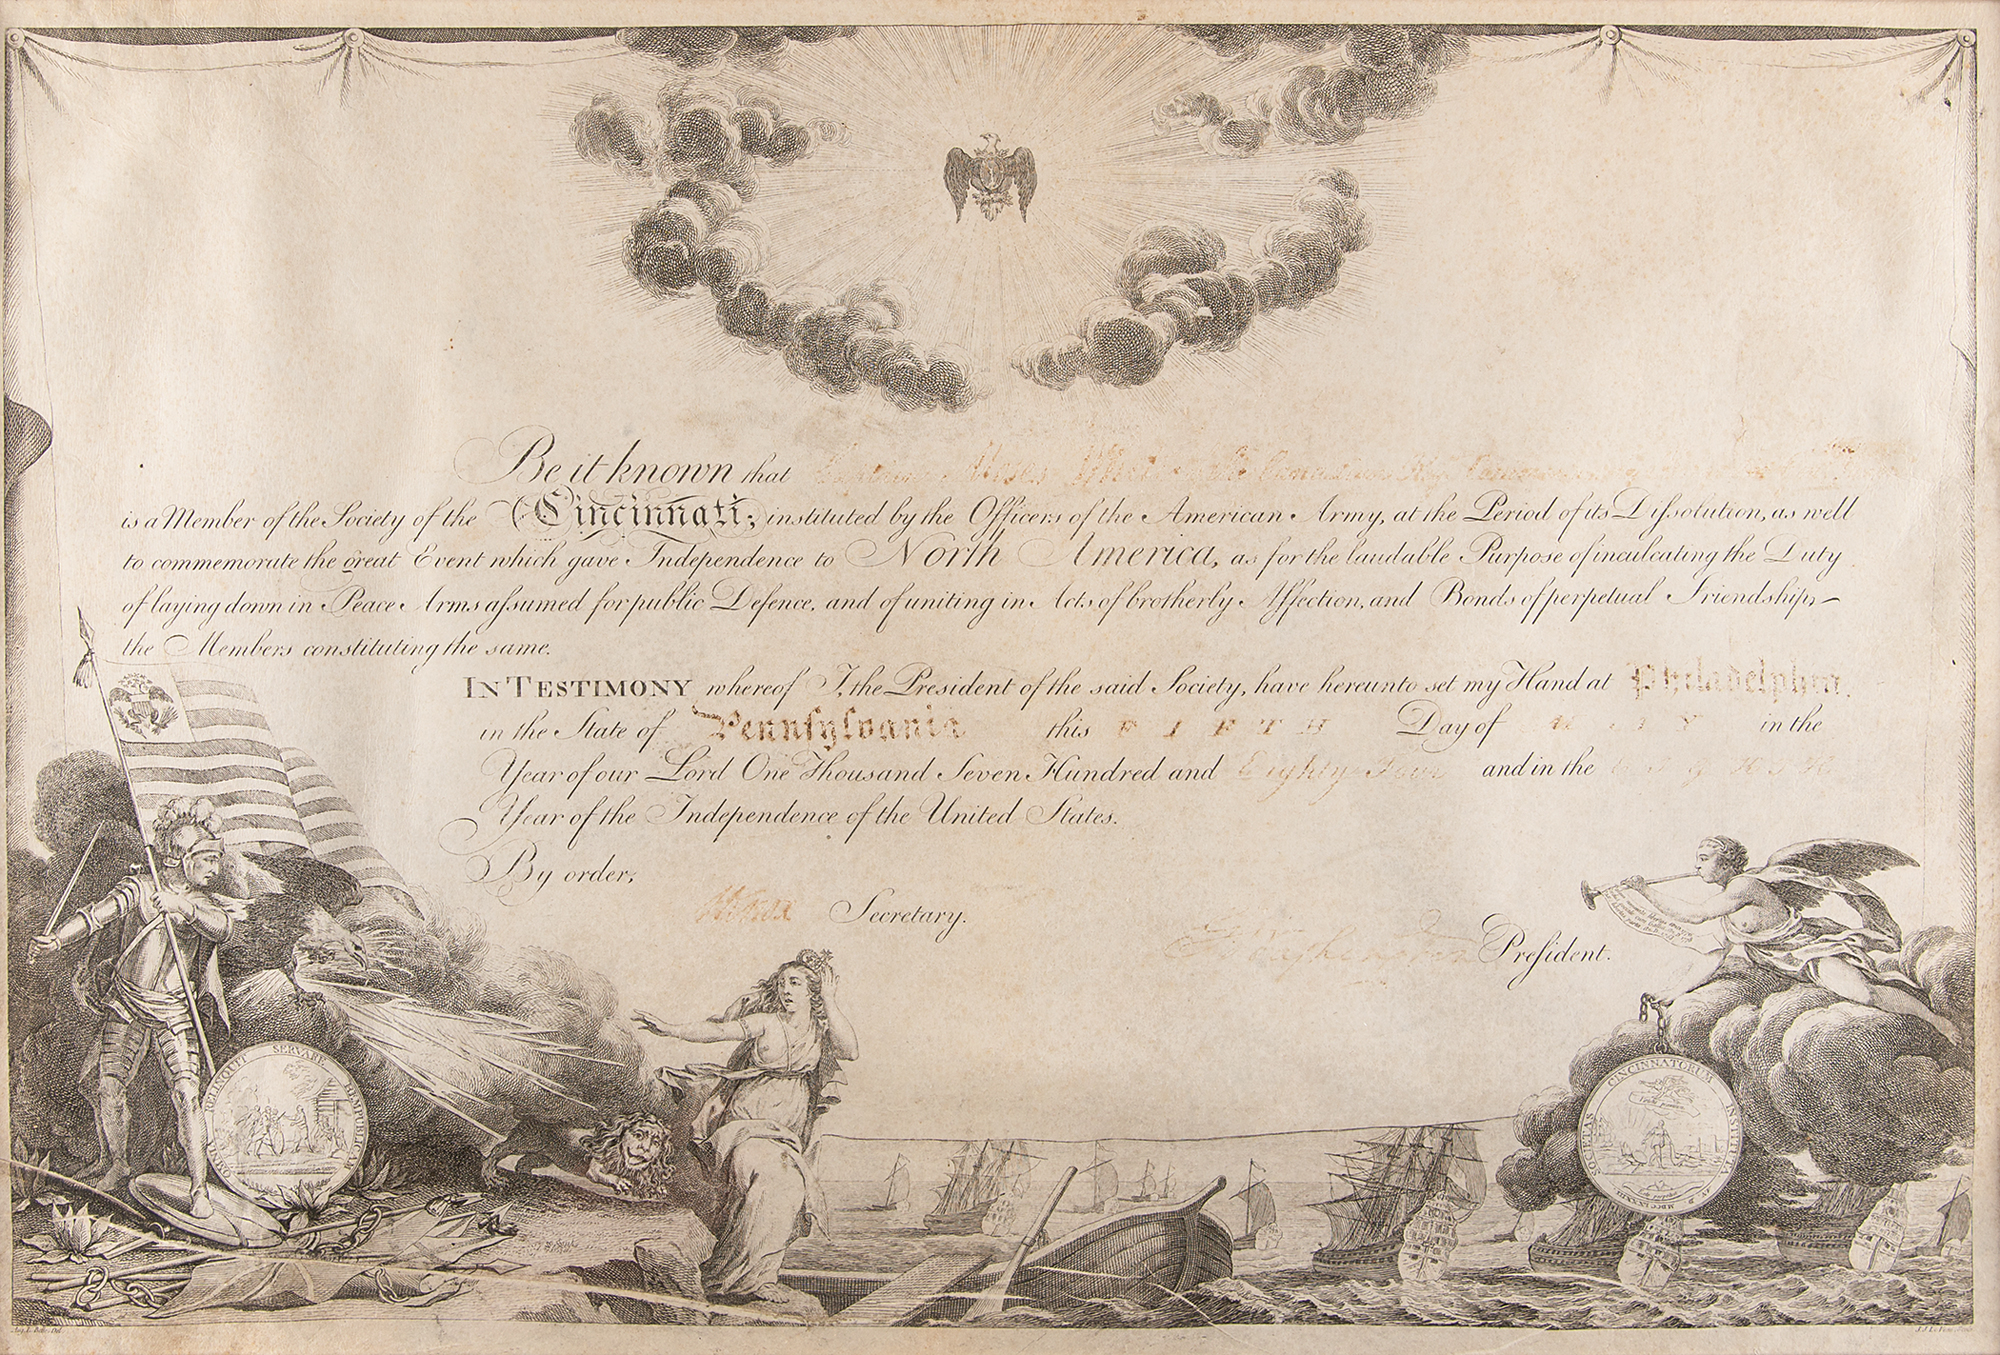 Be it known that Moses
is a Member of the Society of the Cincinnati; instituted by the Officers of the American Army, at the Period of its Dissolution, as well
to commemorate the great Event which gave Independence to North America, as for the laudable Purpose of inculcating the Duty
of laying down in Peace Arms assumed for public Defence, and of uniting in Acts of brotherly Affection, and Bonds of perpetual Friendship,
the Members constituting the same.
IN TESTIMONY whereof I, the President of the said Society, have hereunto set my Hand at Philadelphia
in the State of Pennsylvania this FIFTH Day of MAY in the
Year of our Lord One Thousand Seven Hundred and Eighty Four and in the EIGHTH
Year of the Independence of the United States.
By order,
HKnox Secretary.
GWashington President.
OMNIA RELINQUIT SERVARE REMPUBLICAM
SOCIETAS CINCINNATORUM INSTITUTA AD